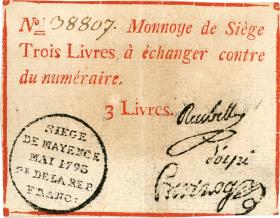 No. 38807. Monnoye de Siège
Trois Livres, à échanger contre
du numéraire.
3 Livres.
Reubell
d'oyré
SIEGE
DE MAYENCE
MAI 1793
2e DE LA REP
FRANC: